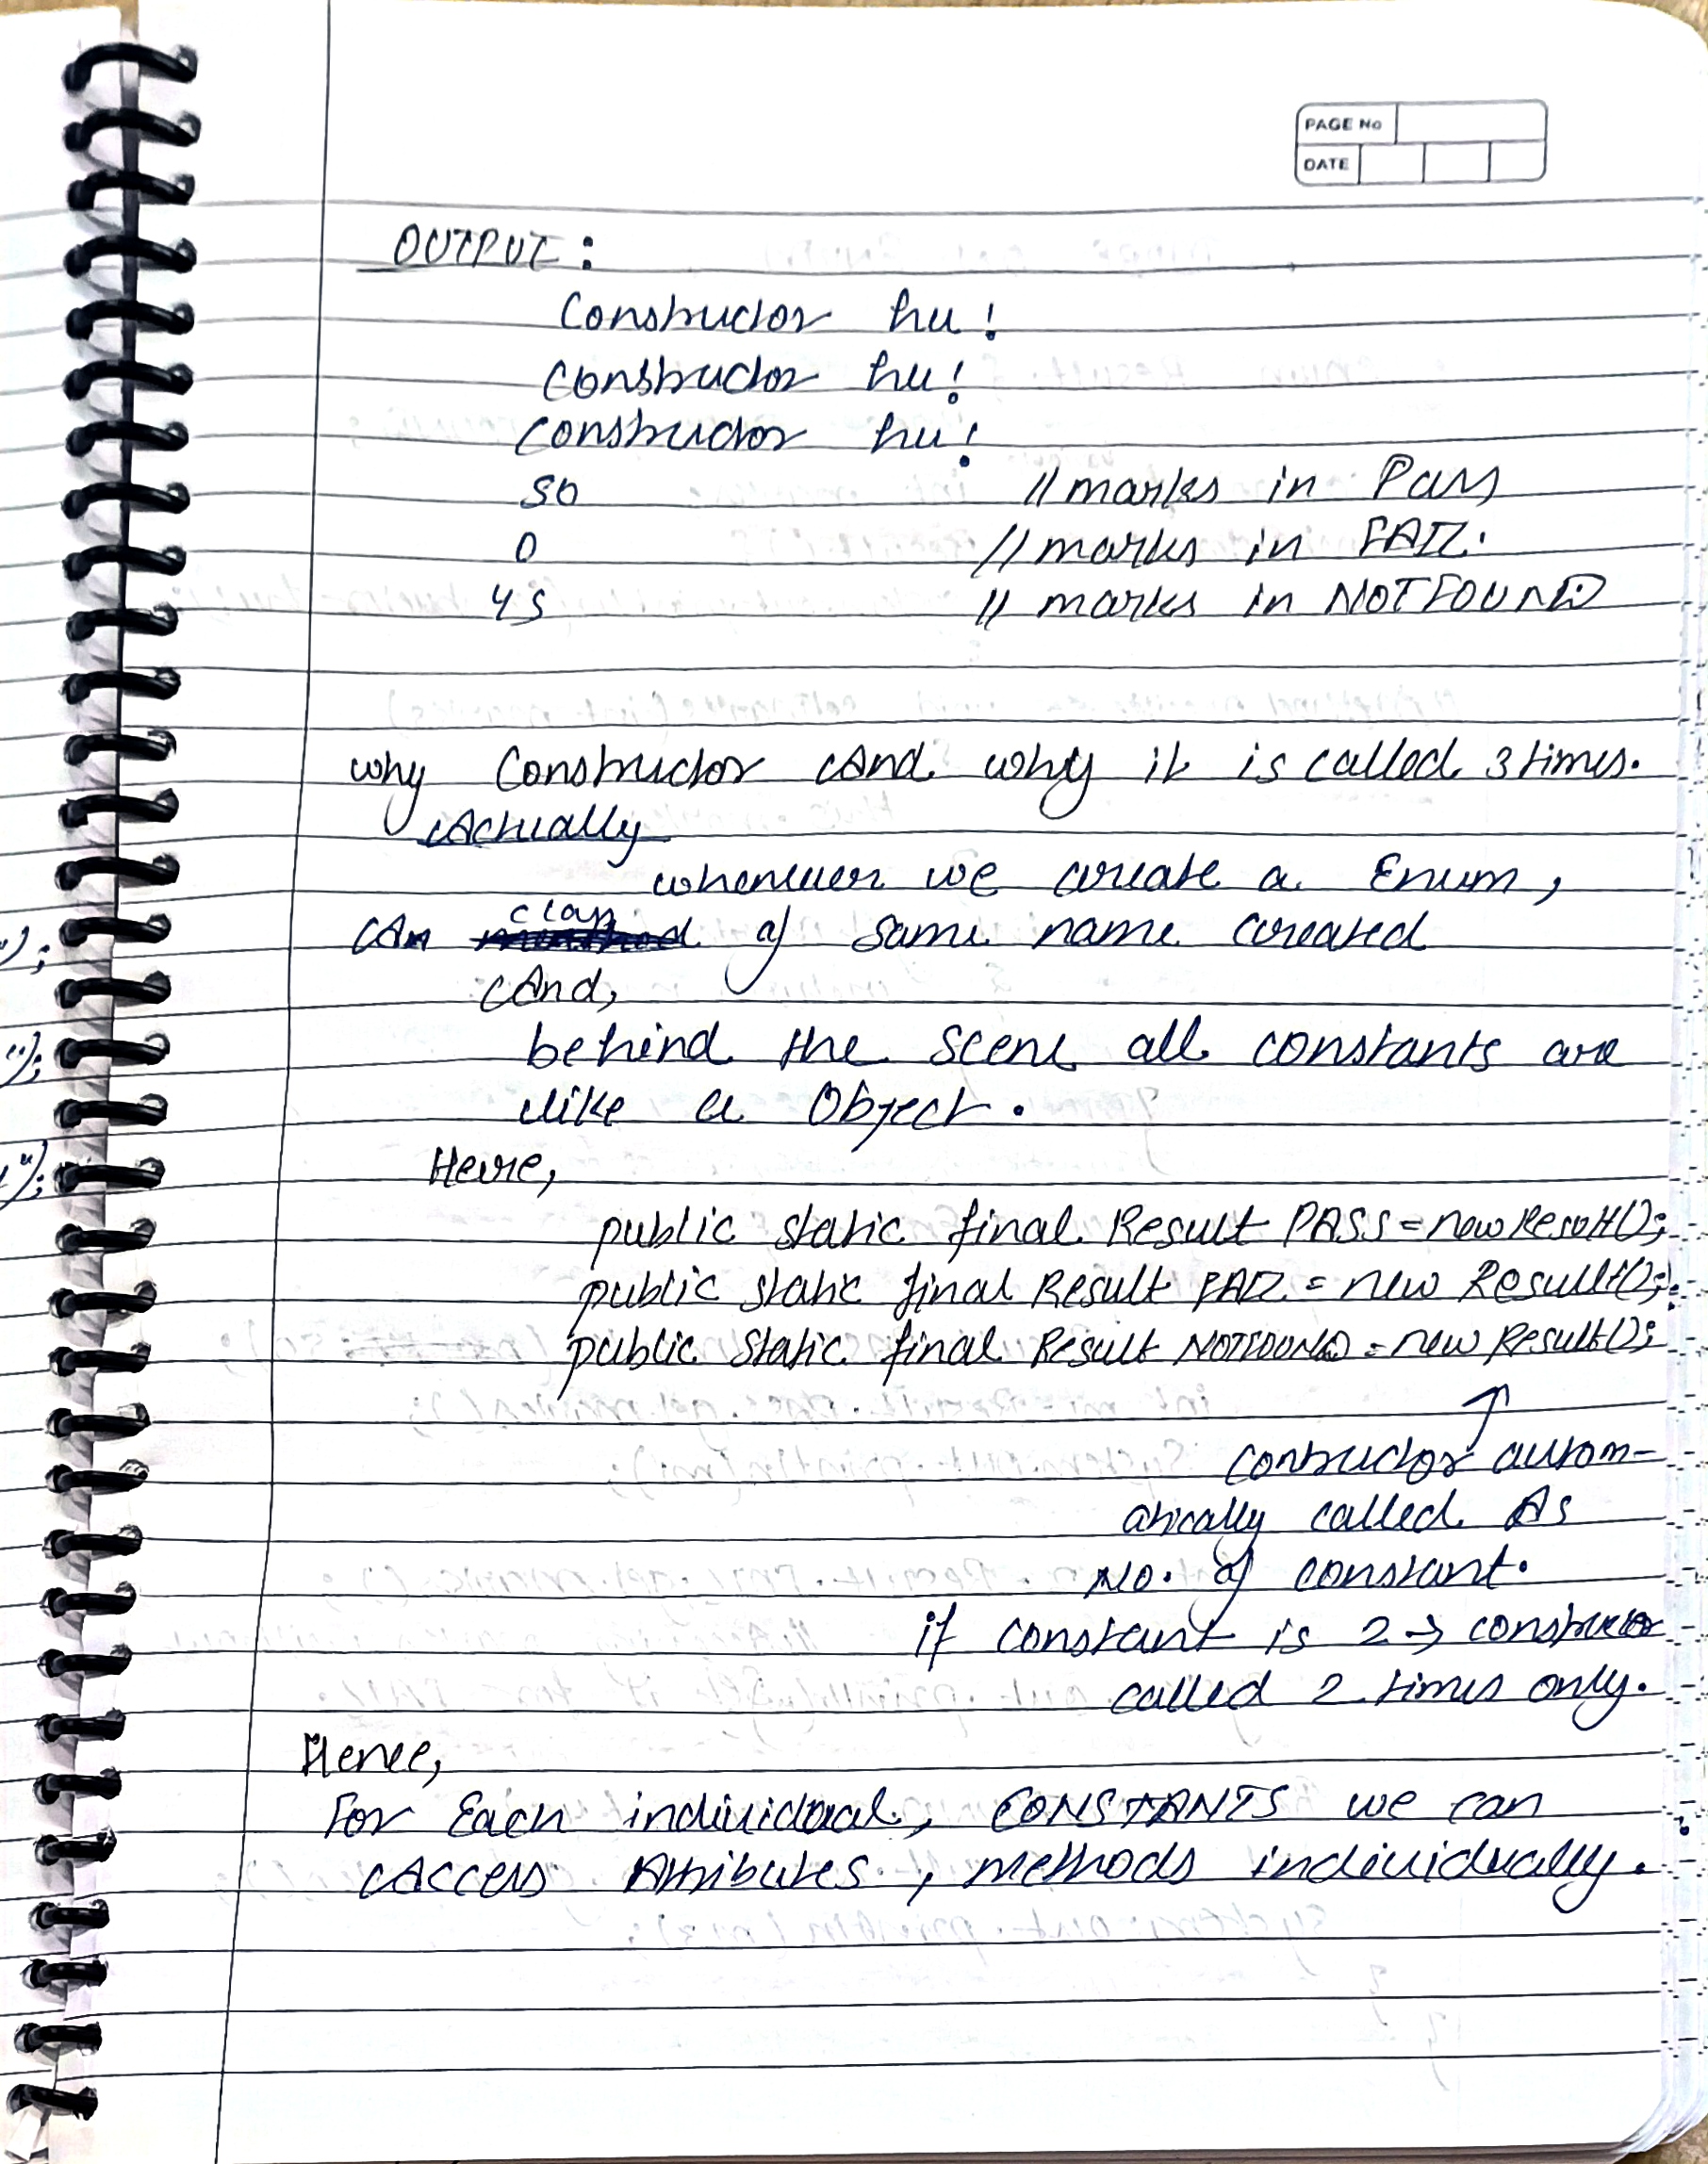 PAGE No
DATE
OUTPUT:
Constructor hu!
Constructor hu!
Constructor hu!
50 // marks in Pass
0 // marks in FAIL.
45 // marks in NOTFOUND
why Constructor And why it is called 3 times.
Actually
whenever we create a Enum,
An class of same name created
And,
behind the scene all constants are
like a Object.
Here,
public static final Result PASS = new Result();
public static final Result FAIL = new Result();
public static final Result NOTFOUND = new Result();
contructor autom-
atically called As
No. of constant.
if constant is 2 → constructor
called 2 times only.
Hence,
For Each individual, CONSTANTS we can
Access Attributes, methods individually.